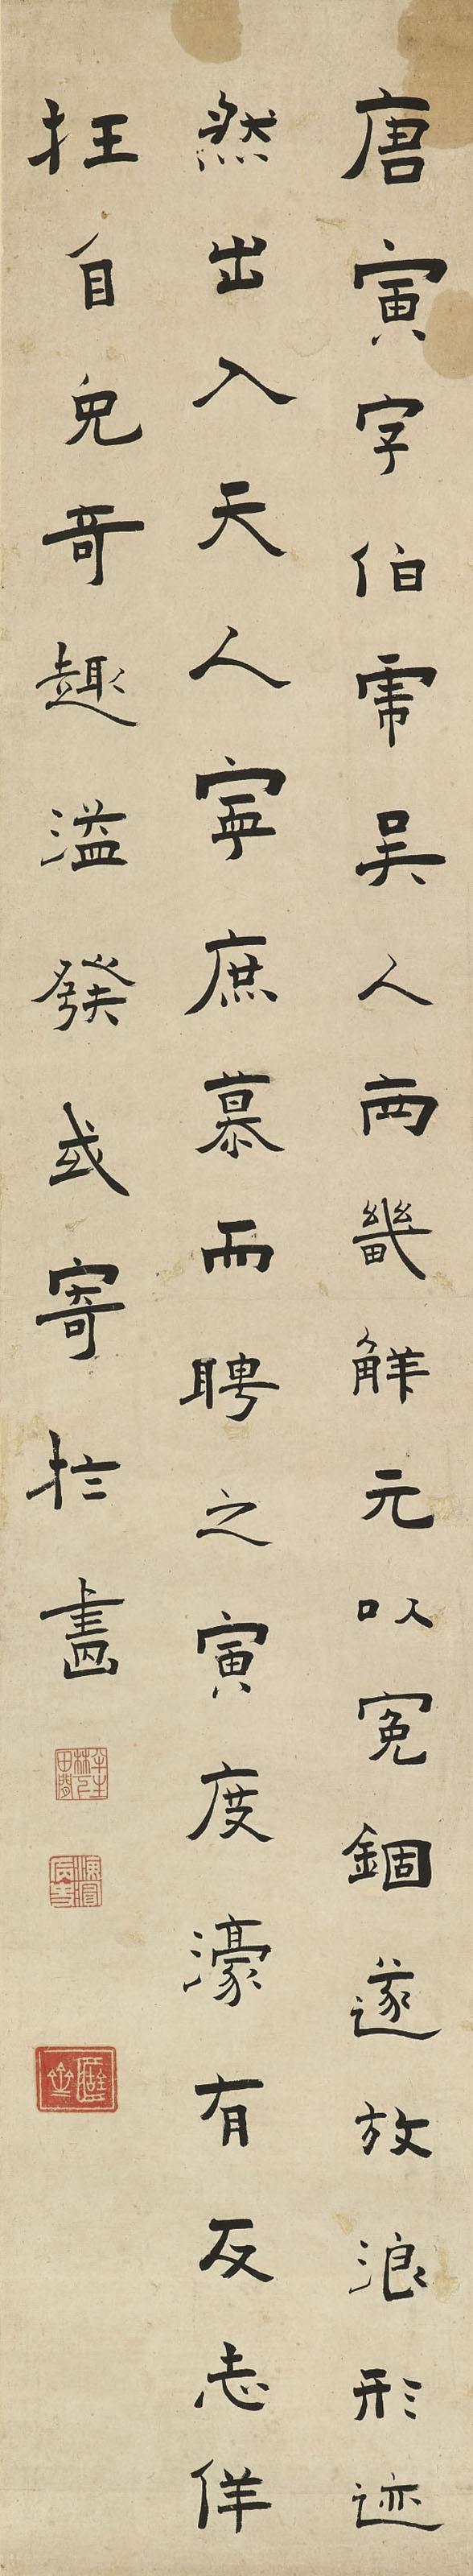 唐寅字伯虎吳人両畿解元以冤錮遂放浪形迹
然出入天人寧庶慕而聘之寅度濠有反志佯
狂自免奇趣溢發或寄於畵